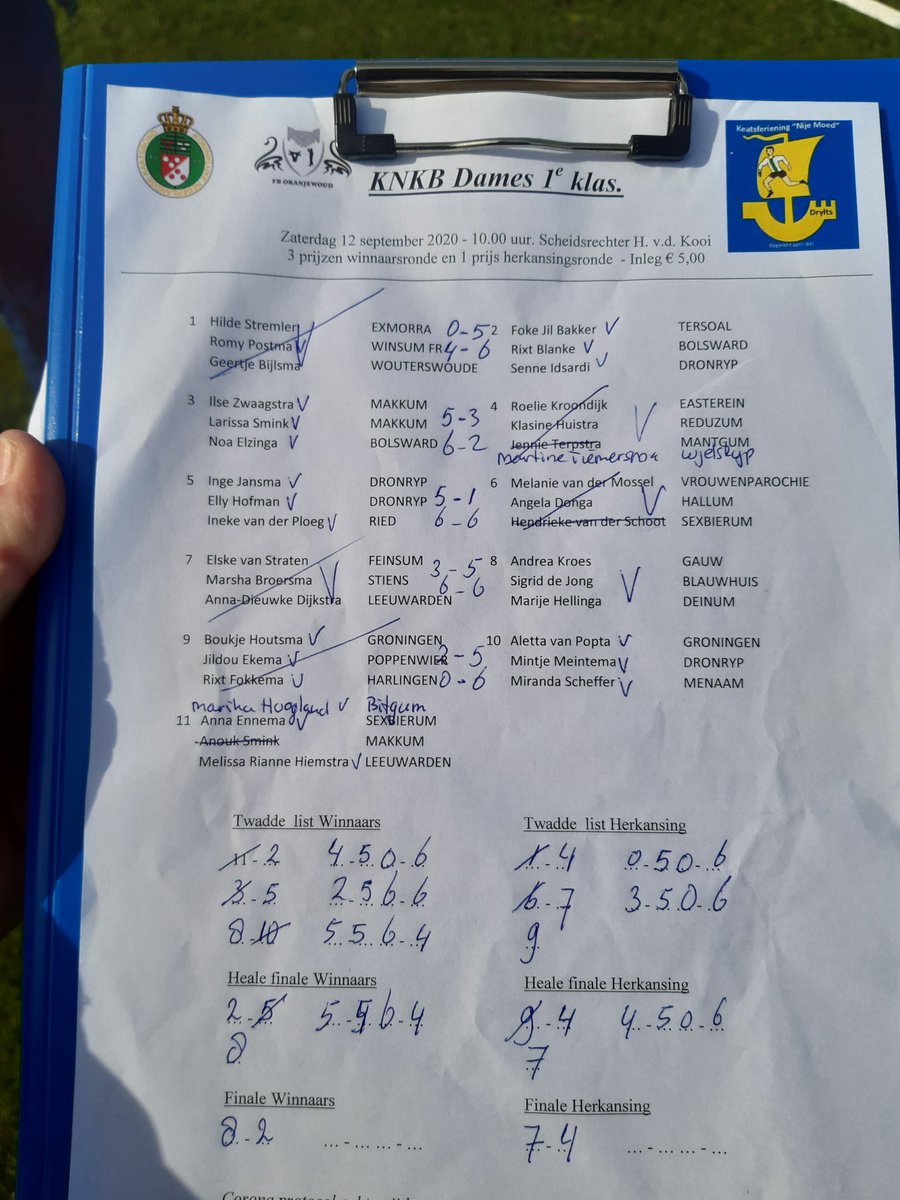 FB ORANJEWOUD
Keatsferiening "Nije Moed"
Drylts
KNKB Dames 1e klas.
Zaterdag 12 september 2020 - 10.00 uur. Scheidsrechter H. v.d. Kooi
3 prijzen winnaarsronde en 1 prijs herkansingsronde - Inleg € 5,00
1 Hilde Stremler EXMORRA 0-5 2 Foke Jil Bakker TERSOAL
Romy Postma WINSUM FR 4-6 Rixt Blanke BOLSWARD
Geertje Bijlsma WOUTERSWOUDE Senne Idsardi DRONRYP
3 Ilse Zwaagstra MAKKUM 4 Roelie Kroondijk EASTEREIN
Larissa Smink MAKKUM 5-3 Klasine Huistra REDUZUM
Noa Elzinga BOLSWARD 6-2 Jennie Terpstra MANTGUM
Martine Tiemersma Wjelsryp
5 Inge Jansma DRONRYP 6 Melanie van der Mossel VROUWENPAROCHIE
Elly Hofman DRONRYP 5-1 Angela Donga HALLUM
Ineke van der Ploeg RIED 6-6 Hendrieke van der Schoot SEXBIERUM
7 Elske van Straten FEINSUM 3-5 8 Andrea Kroes GAUW
Marsha Broersma STIENS 6-6 Sigrid de Jong BLAUWHUIS
Anna-Dieuwke Dijkstra LEEUWARDEN Marije Hellinga DEINUM
9 Boukje Houtsma GRONINGEN 10 Aletta van Popta GRONINGEN
Jildou Ekema POPPENWIER 2-5 Mintje Meintema DRONRYP
Rixt Fokkema HARLINGEN 0-6 Miranda Scheffer MENAAM
Marika Hoogland Bitgum
11 Anna Ennema SEXBIERUM
Anouk Smink MAKKUM
Melissa Rianne Hiemstra LEEUWARDEN
Twadde list Winnaars Twadde list Herkansing
11-2 4-5 0-6 1-4 0-5 0-6
3-5 2-5 6-6 6-7 3-5 0-6
8-10 5-5 6-4 9
Heale finale Winnaars Heale finale Herkansing
2-5 5-5 6-4 9-4 4-5 0-6
8 7
Finale Winnaars Finale Herkansing
8-2 ...-... ...-... 7-4 ...-... ...-...